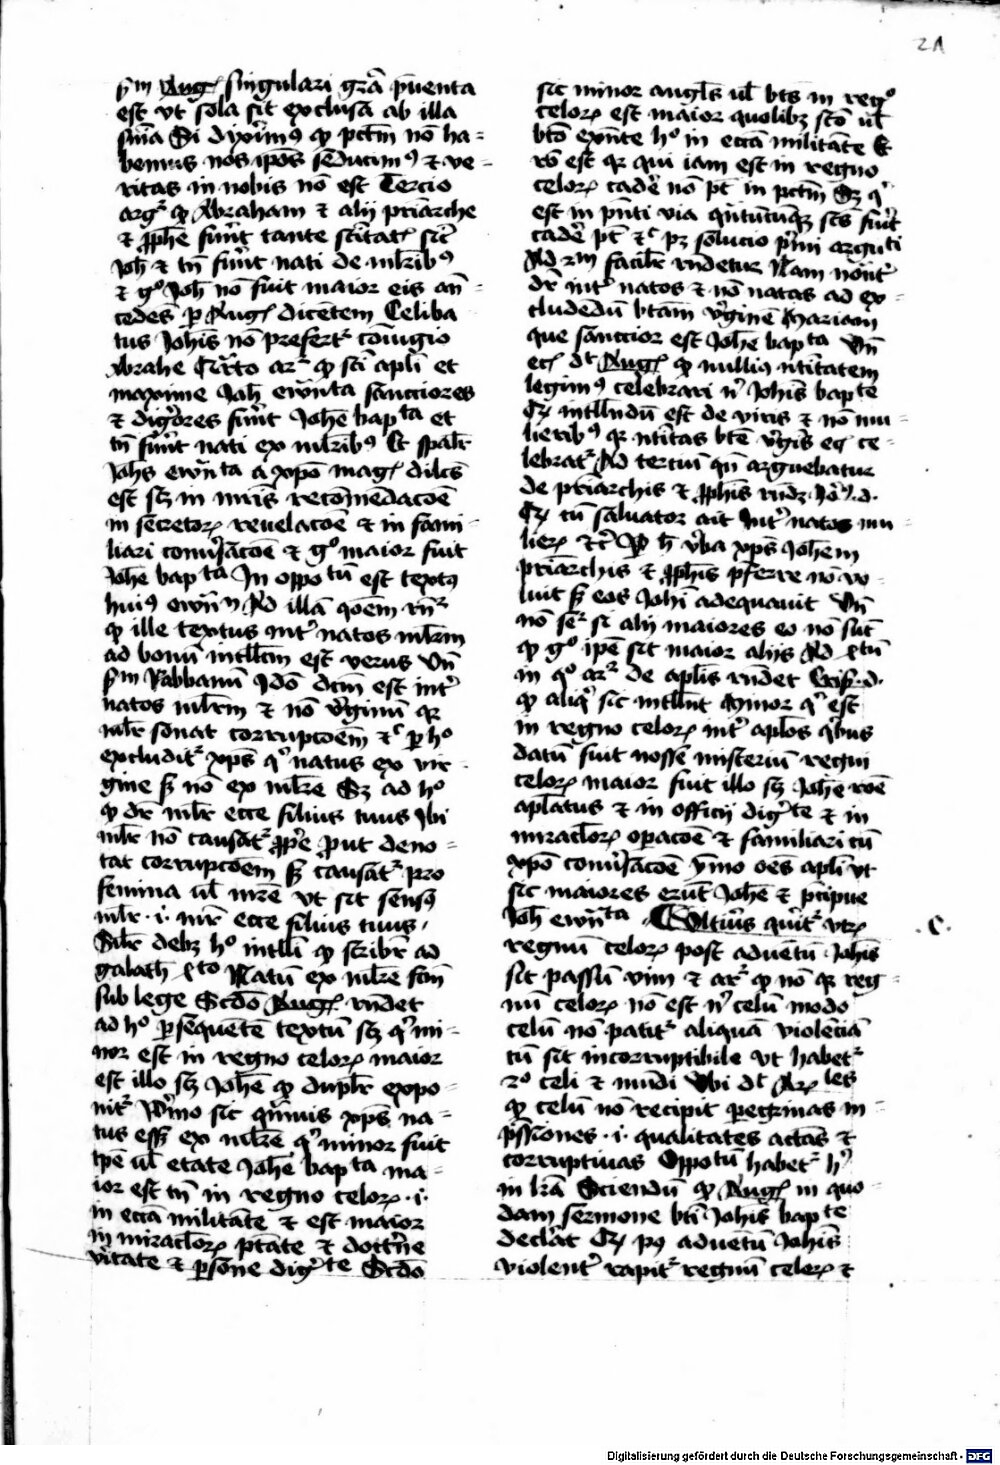 21
s̄m Aug. singulari gr̄a p̄uenta
est vt sola sit exclusa ab illa
sn̄ia Si dixim⁹ qȝ pctm̄ nō ha=
bemus nos ip̄os seducim⁹ ⁊ ve=
ritas in nobis nō est Tercio
argr̄ qȝ Abraham ⁊ alij pr̄iarche
⁊ ꝓph̄e fuer̄t tante sc̄itatꝭ sic̄
Joh̄ ⁊ tn̄ fuer̄t nati de ml̄rib⁹
⁊ g° Joh̄ nō fuit maior eis an=
tedēs ꝑ Aug. dicētem Celiba
tus Joh̄is nō prefertr̄ cōiugio
Abrahe Quarto ar̄ qȝ sc̄i apl̄i et
maxime Joh̄ ewn̄ta sanctiores
⁊ diḡores fuer̄t Joh̄e bapta et
tn̄ fuer̄t nati ex ml̄rib⁹ Et sp̄al̄r
Joh̄s ewn̄ta a xp̄o mag. dilc̄s
est sȝ in mr̄is recōmēdacōe
in secretoꝝ reuelacōe ⁊ in fami=
liari conu̾sacōe ⁊ g° maior fuit
Joh̄e bapta In oppotū est text⁹
hui⁹ ewn̄ Ad illā qōem rn̄r
qȝ ille textus int̾ natos ml̄rm
ad bonū intllc̄m est verus Vn̄
s̄m Rabbanū Idō dc̄m est int̾
natos ml̄rm ⁊ nō v̾ginū qr
ml̄r sonat corrupcōem ⁊c̄ ꝑ h°
excluditr̄ xp̄s q̾ natus ex vir=
gine s̄ nō ex ml̄re Sȝ ad h°
qȝ dr̄ ml̄r ecce filius tuus Ibi
ml̄r nō causatr̄ ꝓp̄e ꝓut deno=
tat corrupcōem s̄ causatr̄ pro
femina ul̄ mr̄e vt sit sens⁹
ml̄r .i. mr̄ ecce filius tuus.
Sil̄r debȝ h° intlli qȝ scribr̄ ad
galath̄ 4to Natū ex ml̄re fcm̄
sub lege Scd̄o Aug. rn̄det
ad h° ꝑsequētē textū sȝ q̾ mi=
nor est in regno celoꝝ maior
est illo sȝ Joh̄e qȝ dupl̄r expo=
nitr̄ P̾mo sic qͣmuis xp̄s na=
tus esset ex ml̄re q̾ minor fuit
tp̄e ul̄ etate Joh̄e bapta ma=
ior est tn̄ in regno celoꝝ .i.
in ecc̄ia militāte ⁊ est maior
in miracl̄oꝝ ptāte ⁊ doctrīe
v̾itate ⁊ ꝑsone dig̾te Scd̄o
sic minor angl̄s ul̄ bt̄s in reg°
celoꝝ est maior quolibȝ scō ul̄
btō exn̄te h° in ecc̄ia militāte Et
rō est qr qui iam est in regno
celoꝝ cade̾ nō pt̄ in pctm̄ Sȝ q̾
est in pn̄ti via qͣntūcūqȝ sc̄s fue̾t
cade̾ pt̄ ⁊c̄ pȝ solucio p̾mi argu̾ti
Ad 2m facil̾r rn̄detur Nam nōnt̾
dr̄ int̾ natos ⁊ nō natas ad ex=
cludēdū btām v̾ginē Mariam
que sanctior est Joh̄e bapta Vn̄
ec̄ dt̄ Aug. qȝ nulli⁹ ntitatem
legim⁹ celebrari n̾ Joh̄is bapte
Qȝ intllndū est de viris ⁊ nō mu=
lierib⁹ qr ntitas btē v̾gīs ec̄ ce=
lebratr̄ Ad tertiū qn̄ arguebatur
de pr̄iarchis ⁊ ꝓph̄is rn̄dȝ Jo.9.d.
Qȝ cū saluator ait Int̾ natos mu=
lieꝝ ⁊c̄ Ꝑ h̄ v̾ba xp̄s Joh̄em
pr̄iarchis ⁊ ꝓph̄is p̄ferre nō vo=
luit s̄ eos Joh̄i adequauit Vn̄
nō se̾ si alij maiores eo nō sūt
qȝ g° ip̄e sit maior alijs Ad 4tū
in q° ar̄ de apl̄is rn̄det Cris.d.
qȝ aliq̾ sic intllnt Minor q̾ est
in regno celoꝝ int̾ apl̄os q̾bus
datū fuit nosse misteriū regni
celoꝝ maior fuit illo sȝ Joh̄e rōe
apl̄atus ⁊ in officij dig̾te ⁊ in
miracl̄oꝝ oꝑacōe ⁊ familiari cū
xp̄o conu̾sacōe ymo oēs apl̄i vt
sic maiores erūt Joh̄e ⁊ p̾cipue
Joh̄ ewn̄ta . Vlti̾us quer̄itr̄ vtȝ
.C.
regnū celoꝝ post aduētū Joh̄is
sit passū vim ⁊ ar̄ qȝ nō qr reg=
nū celoꝝ nō est n̾ celū modo
celū nō patitr̄ aliquā violēciā
cū sit incorruptibile vt habetr̄
2° celi ⁊ mūdi Vbi dt̄ Arꝝles
qȝ celū nō recipit ꝑegrinas im=
p̄ssiones .i. qualitates actās ⁊
corruptiuas Oppotū habetr̄ h̾
in lrā Sciendū qȝ Aug. in quo=
dam sermone bt̄i Joh̄is bapte
declat Qȝ p⁹ aduētū Joh̄is
violent̾ rapitr̄ regnū celoꝝ ⁊
Digitalisierung gefördert durch die Deutsche Forschungsgemeinschaft - DFG